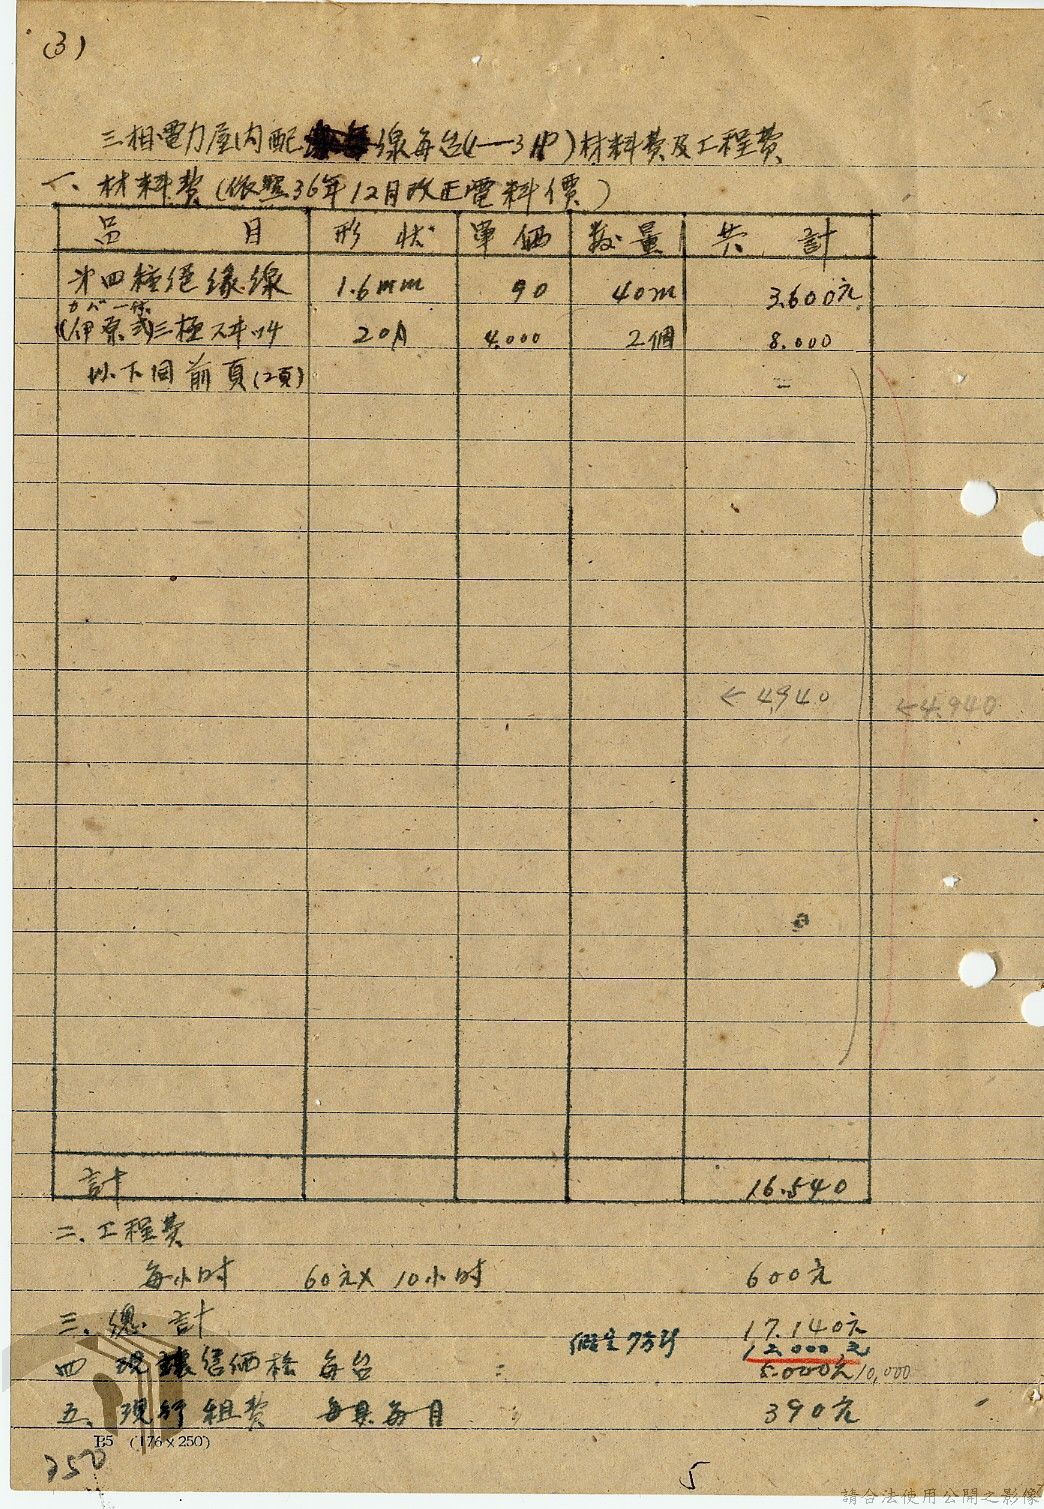 (3)
三相電力屋内配線每台(1—3HP)材料費及工程費
一、材料費(依照36年12月改正電料價)
品 目 形 状 単 価 数 量 共 計
第四種絕緣線 1.6mm 90 40m 3.600元
カバー付
(伊原式)三極スヰッチ 20A 4.000 2個 8.000
以下同前頁(2頁)
←4,940 ←4.940
計 16.540
二、工程費
每小时 60元× 10小时 600元
三、總計 17.140元
12.000元
四 現 售価格 每台 : 10,000
五、現行租費 每具每月 : 390元
B5 (176×250)
250
5
請合法使用公開之影像